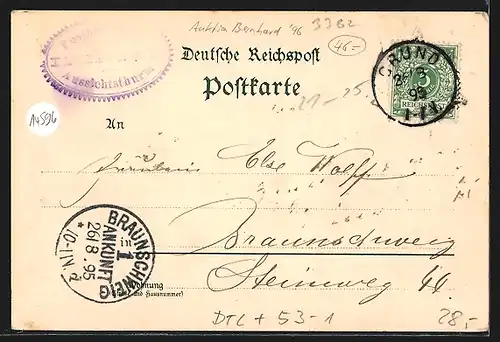 Auktion Bernhard '96 3382
46.-
Deutsche Reichspost
Postkarte
Aussichtsthurm
GRUND
95
3
REICHSPOST
21-25
A4596
An
Fräulein Else Wolff
Braunschweig
Steinweg 46
BRAUNSCHWEIG
in 1
ANKUNFT
26/8.95
10-11V.
*d
Wohnung
(Straße und Hausnummer)
DTL + 53-1
28,-